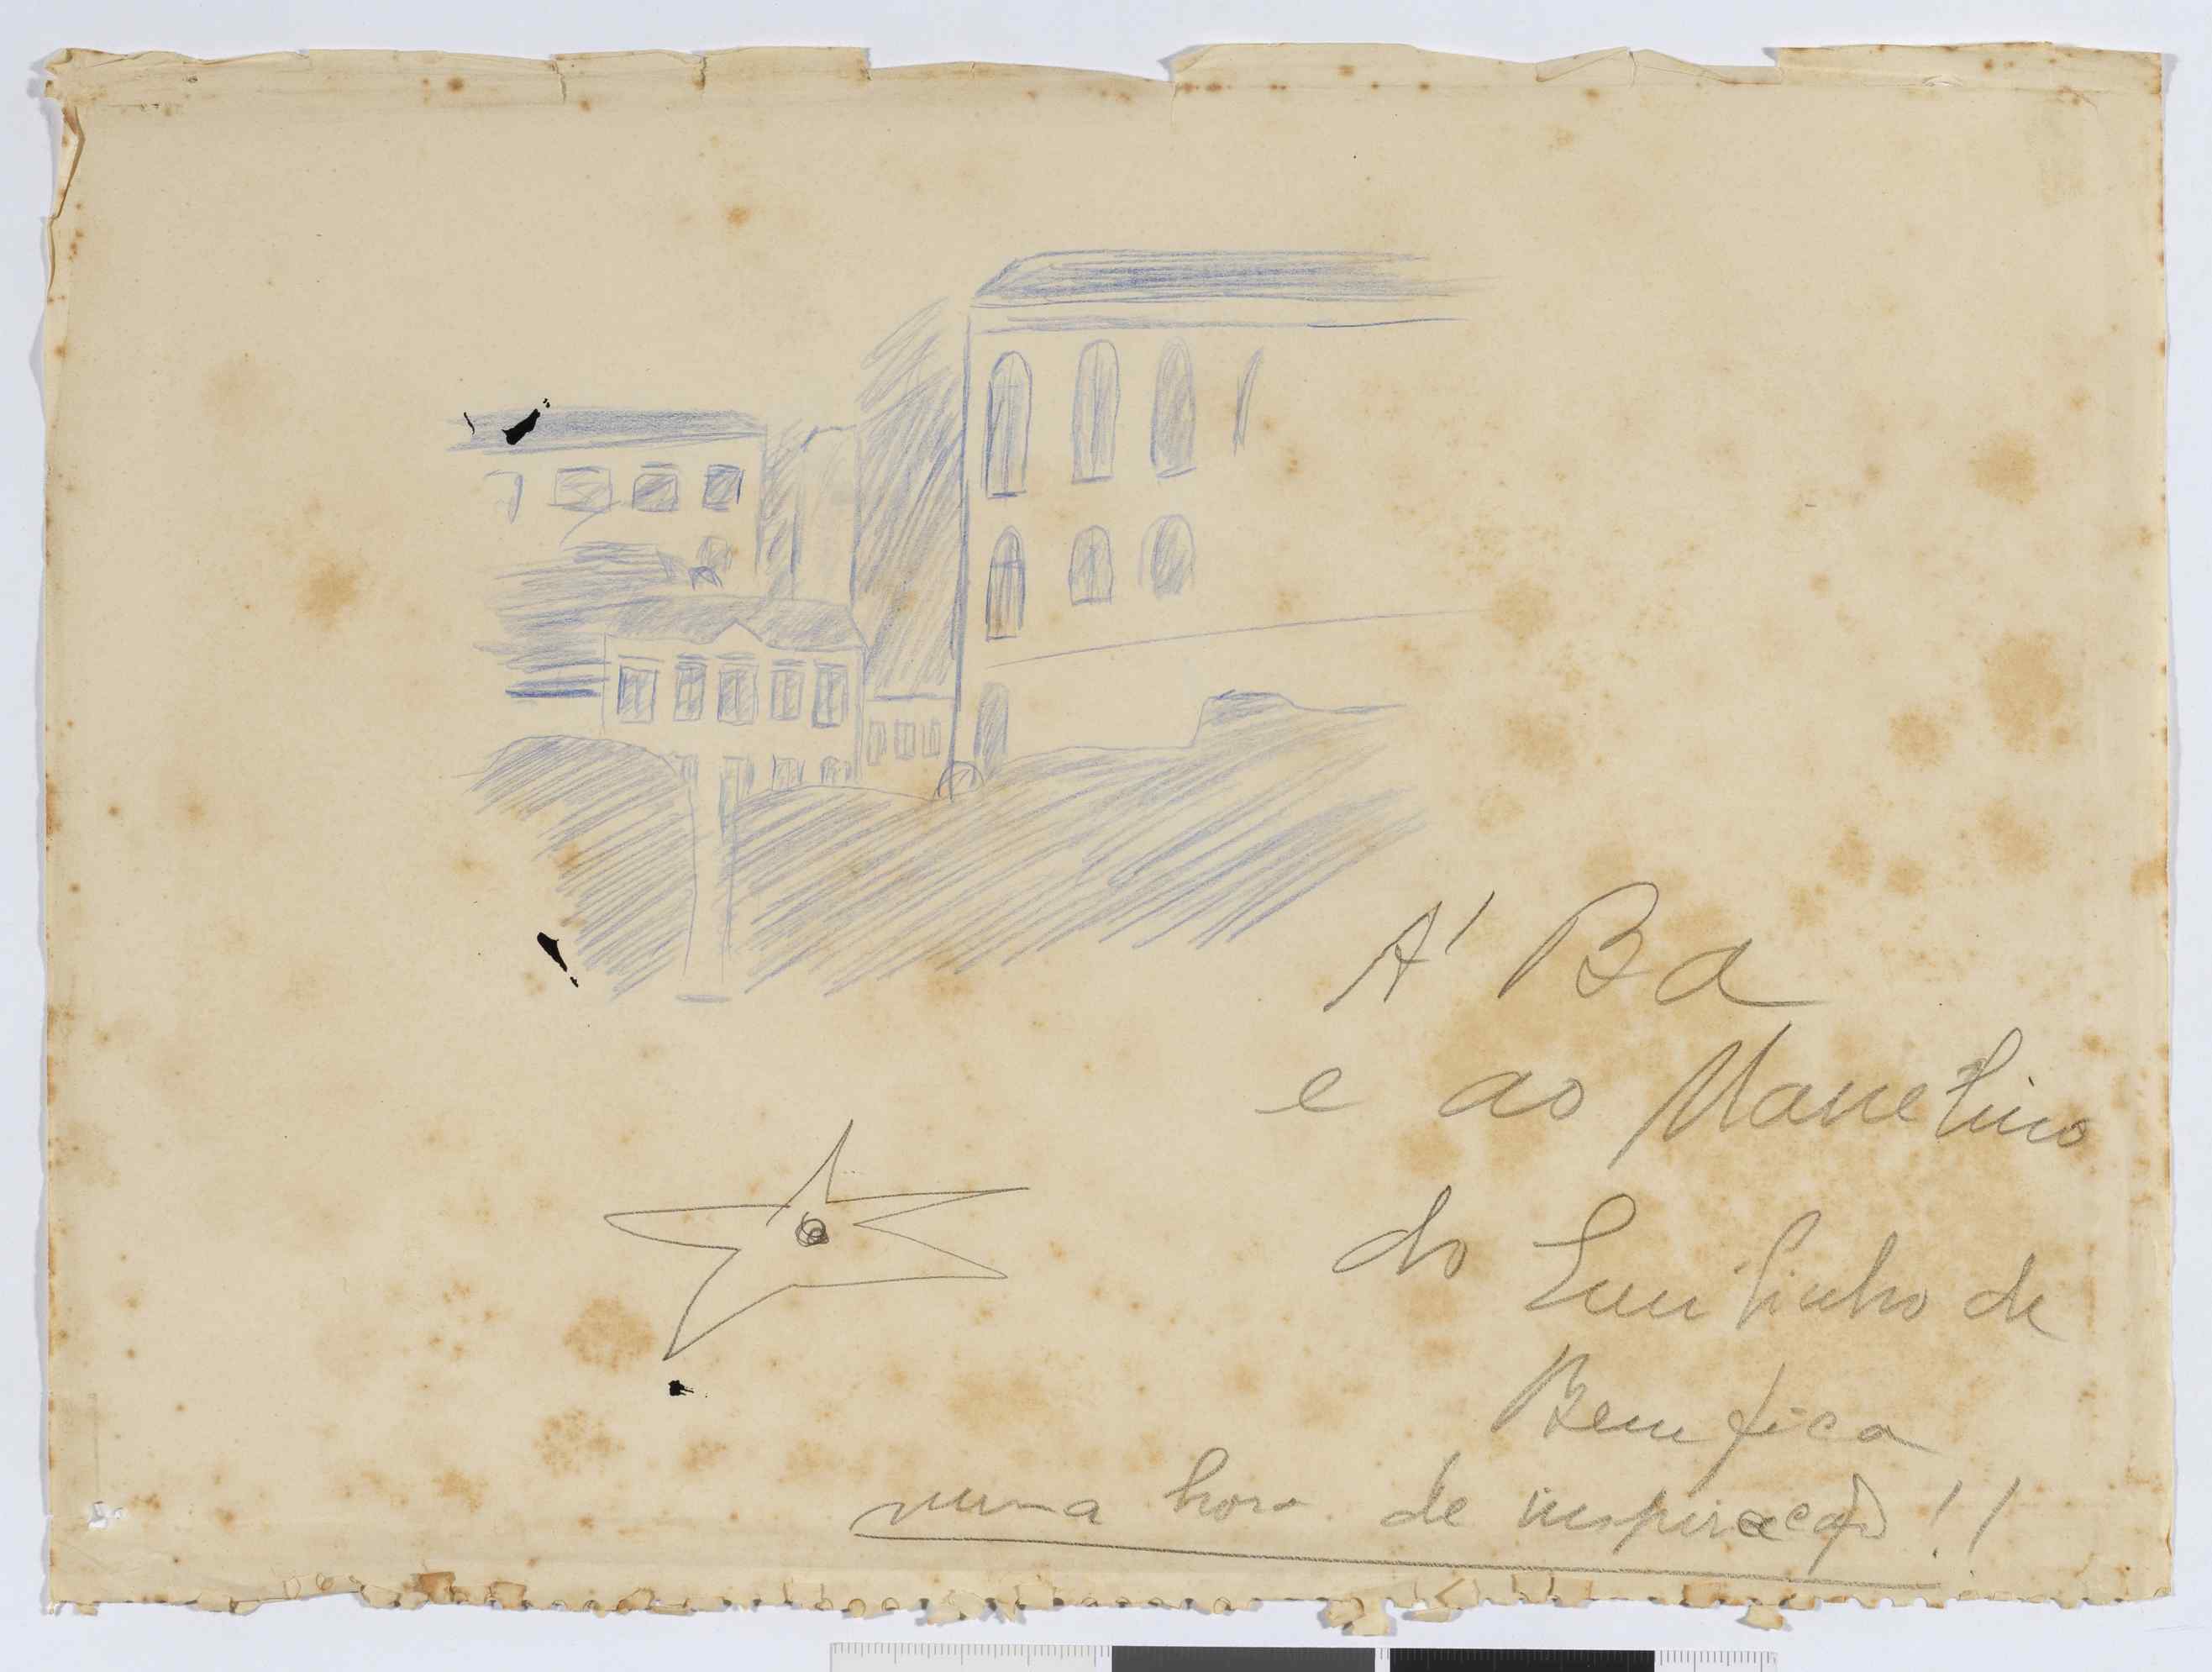 A' Ba
e ao Manelino
do Luizinho de
Bemfica
numa hora de inspiração!!